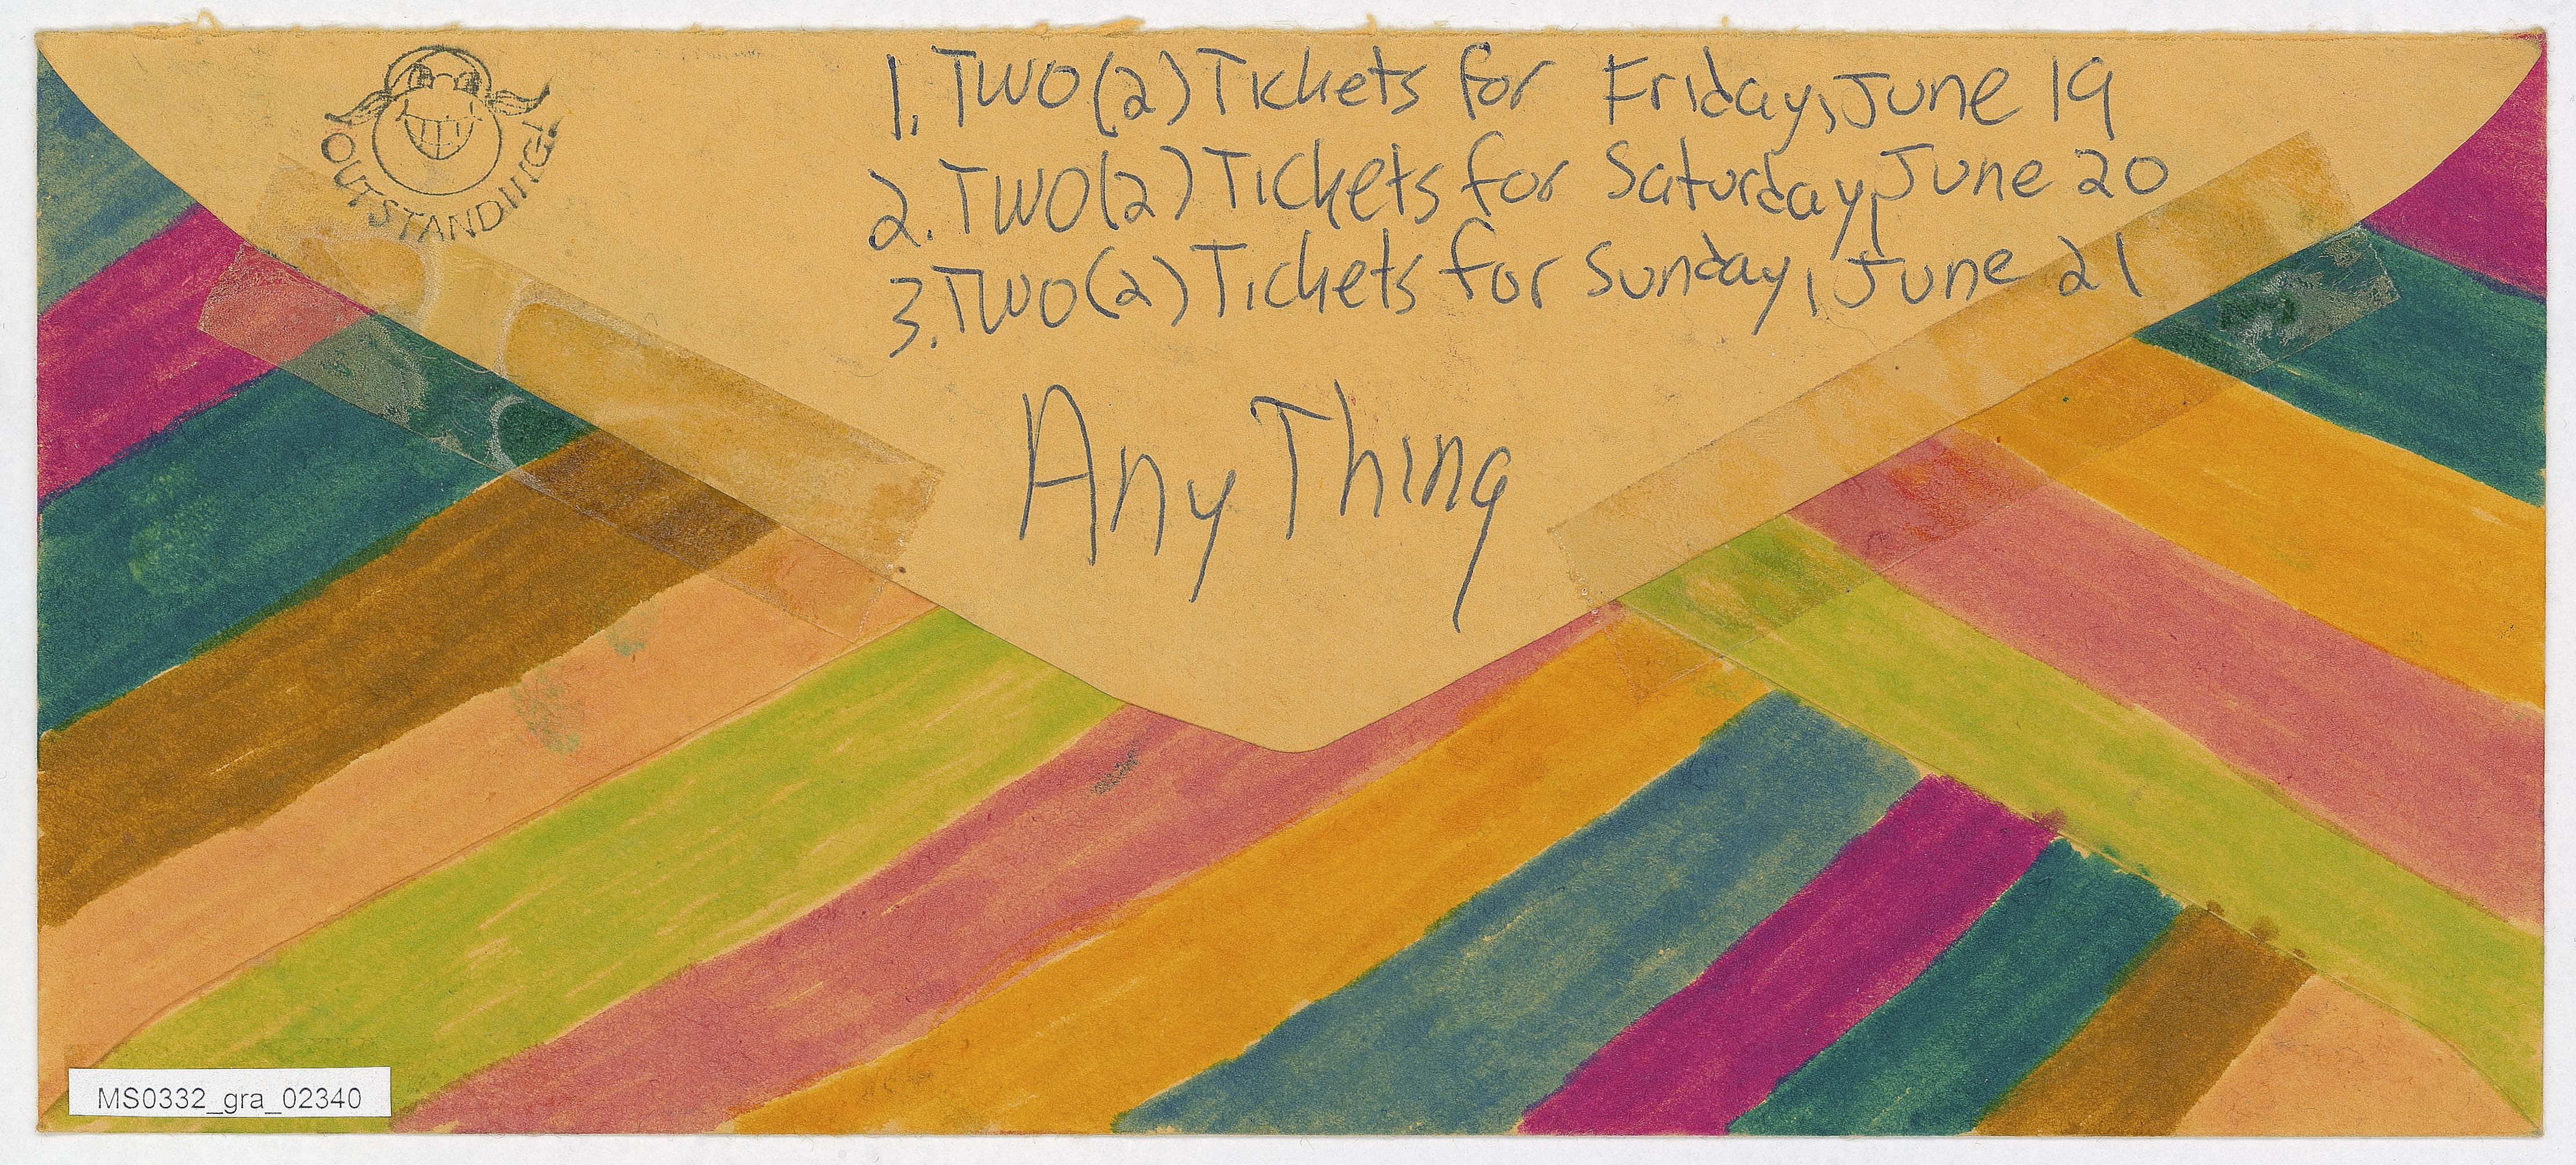 OUTSTANDING!
1. Two (2) Tickets for Friday, June 19
2. Two (2) Tickets for Saturday, June 20
3. Two (2) Tickets for Sunday, June 21
Any Thing
MS0332_gra_02340